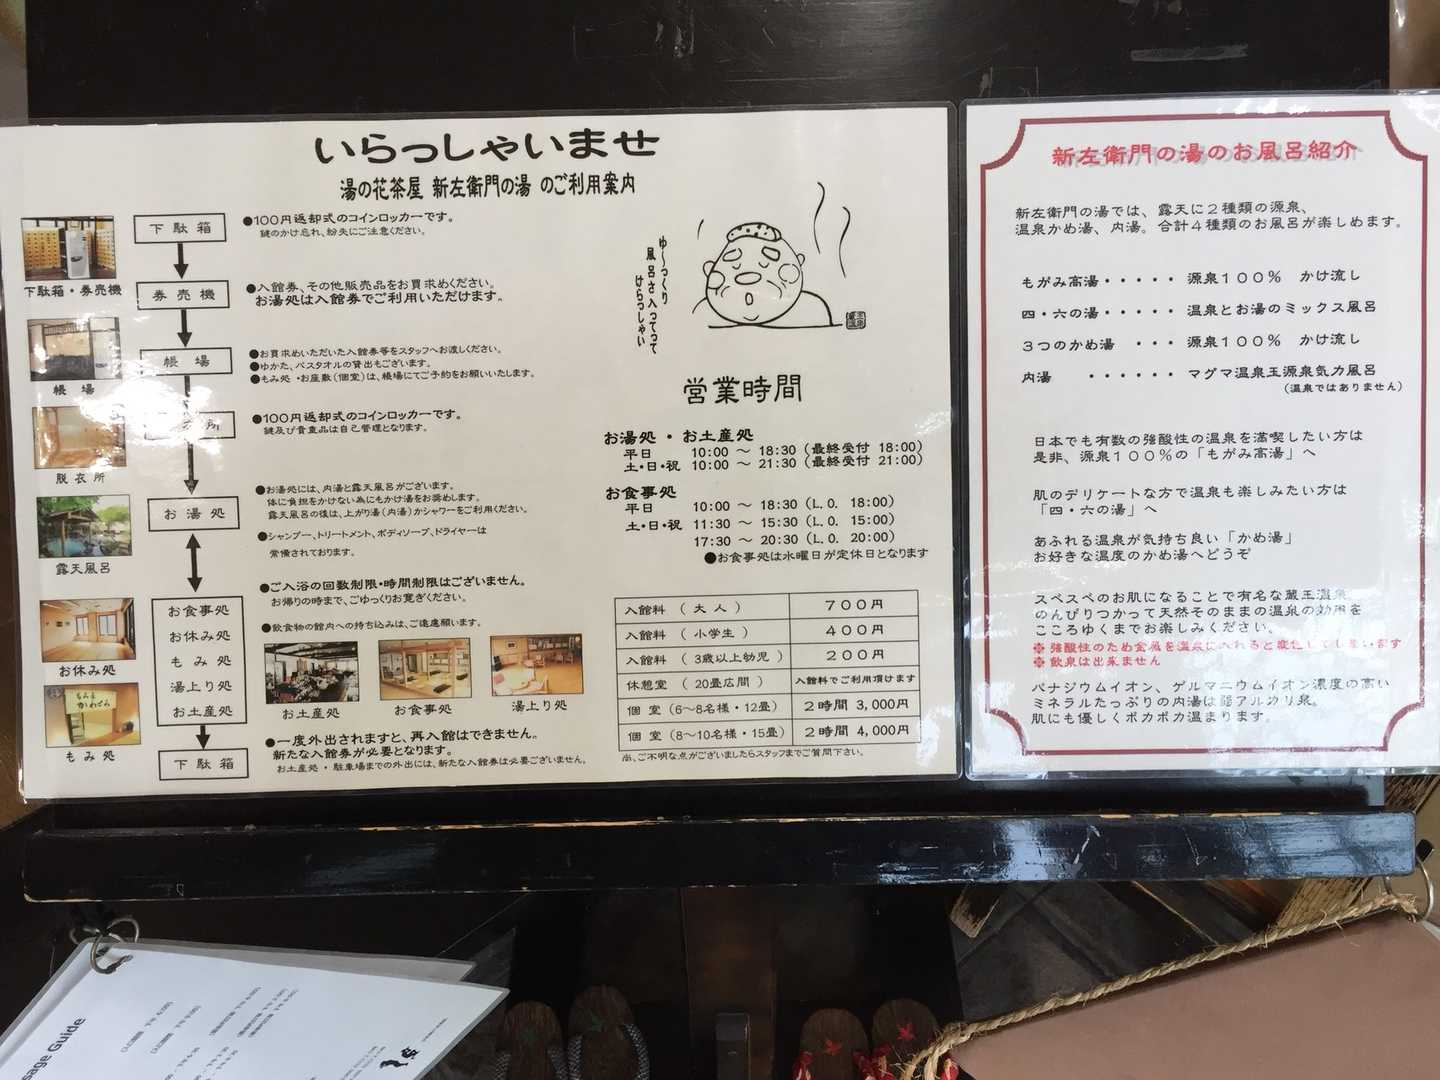 いらっしゃいませ
湯の花茶屋 新左衛門の湯 のご利用案内
下駄箱・券売機
帳場
脱衣所
露天風呂
お休み処
もみ処
下駄箱
券売機
帳場
所
お湯処
お食事処
お休み処
もみ処
湯上り処
お土産処
下駄箱
●100円返却式のコインロッカーです。
鍵のかけ忘れ、紛失にご注意ください。
●入館券、その他販売品をお買求めください。
お湯処は入館券でご利用いただけます。
●お買求めいただいた入館券等をスタッフへお渡しください。
●ゆかた、バスタオルの貸出もございます。
●もみ処・お座敷(個室)は、帳場にてご予約をお願いいたします。
●100円返却式のコインロッカーです。
鍵及び貴重品は自己管理となります。
●お湯処には、内湯と露天風呂がございます。
体に負担をかけない為にもかけ湯をお奨めします。
露天風呂の後は、上がり湯(内湯)かシャワーをご利用ください。
●シャンプー、トリートメント、ボディソープ、ドライヤーは
常備されております。
●ご入浴の回数制限・時間制限はございません。
お帰りの時まで、ごゆっくりお寛ぎください。
●飲食物の館内への持ち込みは、ご遠慮願います。
お土産処
お食事処
湯上り処
●一度外出されますと、再入館はできません。
新たな入館券が必要となります。
お土産処・駐車場までの外出には、新たな入館券は必要ございません。
ゆ〜っくり
風呂さ入ってって
けらっしゃい
営業時間
お湯処・お土産処
平日 10:00 〜 18:30 (最終受付 18:00)
土・日・祝 10:00 〜 21:30 (最終受付 21:00)
お食事処
平日 10:00 〜 18:30 (L.O. 18:00)
土・日・祝 11:30 〜 15:30 (L.O. 15:00)
17:30 〜 20:30 (L.O. 20:00)
●お食事処は水曜日が定休日となります
入館料 (大人) 700円
入館料 (小学生) 400円
入館料 (3歳以上幼児) 200円
休憩室 (20畳広間) 入館料でご利用頂けます
個室 (6〜8名様・12畳) 2時間 3,000円
個室 (8〜10名様・15畳) 2時間 4,000円
尚、ご不明な点がございましたらスタッフまでご質問下さい。
新左衛門の湯のお風呂紹介
新左衛門の湯では、露天に2種類の源泉、
温泉かめ湯、内湯。合計4種類のお風呂が楽しめます。
もがみ高湯・・・・・ 源泉100% かけ流し
四・六の湯・・・・・ 温泉とお湯のミックス風呂
3つのかめ湯 ・・・ 源泉100% かけ流し
内湯 ・・・・・・ マグマ温泉玉源泉気力風呂
(温泉ではありません)
日本でも有数の強酸性の温泉を満喫したい方は
是非、源泉100%の「もがみ高湯」へ
肌のデリケートな方で温泉も楽しみたい方は
「四・六の湯」へ
あふれる温泉が気持ち良い「かめ湯」
お好きな温度のかめ湯へどうぞ
スベスベのお肌になることで有名な蔵王温泉
のんびりつかって天然そのままの温泉の効用を
こころゆくまでお楽しみください。
※強酸性のため金属を温泉に入れると酸性してしまいます
※飲泉は出来ません
バナジウムイオン、ゲルマニウムイオン濃度の高い
ミネラルたっぷりの内湯は弱アルカリ泉。
肌にも優しくポカポカ温まります。
sage Guide